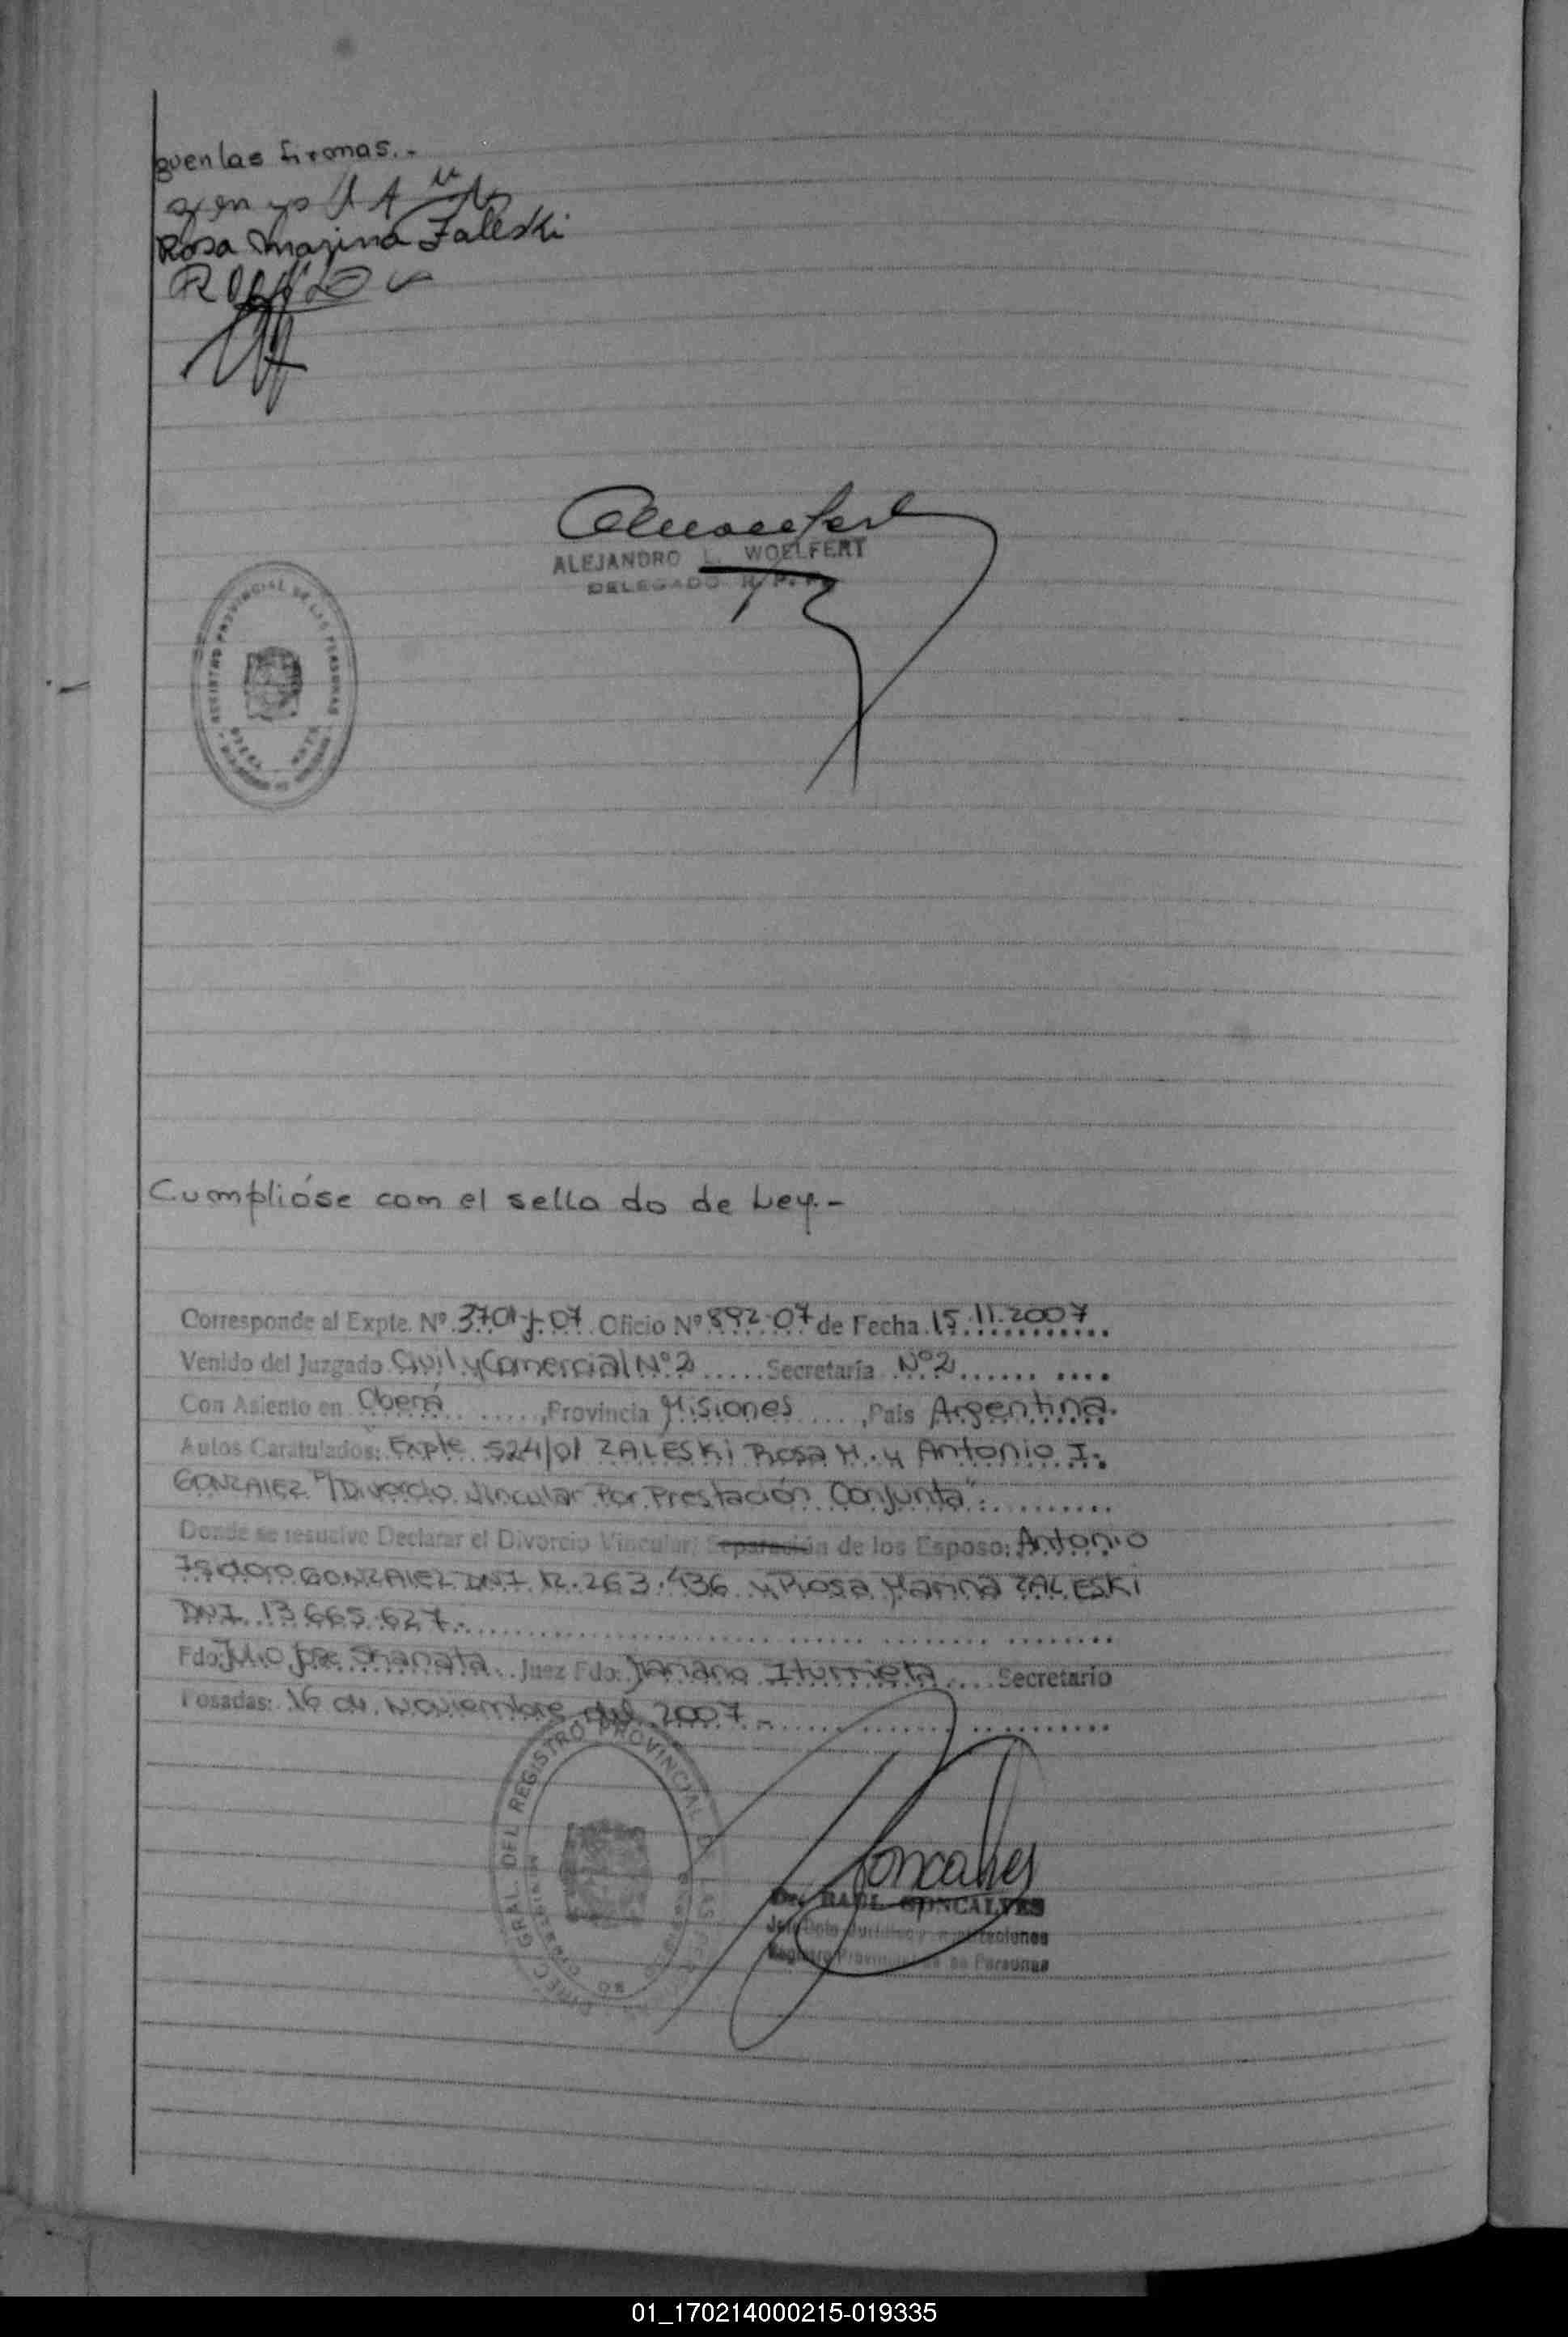 guen las firmas.-
Rosa Marina Zaleski
ALEJANDRO L. WOELFERT
DELEGADO R. P. P.
REGISTRO PROVINCIAL DE LAS PERSONAS
Cumplióse com el sella do de Ley.-
Corresponde al Expte. Nº 3701-J-07 Oficio Nº 892-07 de Fecha 15.11.2007
Venido del Juzgado Civil y Comercial Nº 2 Secretaría Nº 2
Con Asiento en Oberá, Provincia Misiones, País Argentina.
Autos Caratulados: Expte 524/01 ZALESKi Rosa M. y Antonio I.
GONZALEZ S/Divorcio Vincular Por Prestación Conjunta".
Donde se resuelve Declarar el Divorcio Vincular/ Separación de los Esposo: Antonio
Isidoro GONZALEZ DNI 12.263.436 y Rosa Marina ZALESKi
DNI 13.665.627.
Fdo: Julio Jose Juez Fdo: Mariano Iturrieta Secretario
Posadas: 16 de Noviembre del 2007.-
DIREC. GRAL. DEL REGISTRO PROVINCIAL DE LAS PERSONAS
Goncalves
Dr. RAUL GONCALVES
Registro Provincial de las Personas